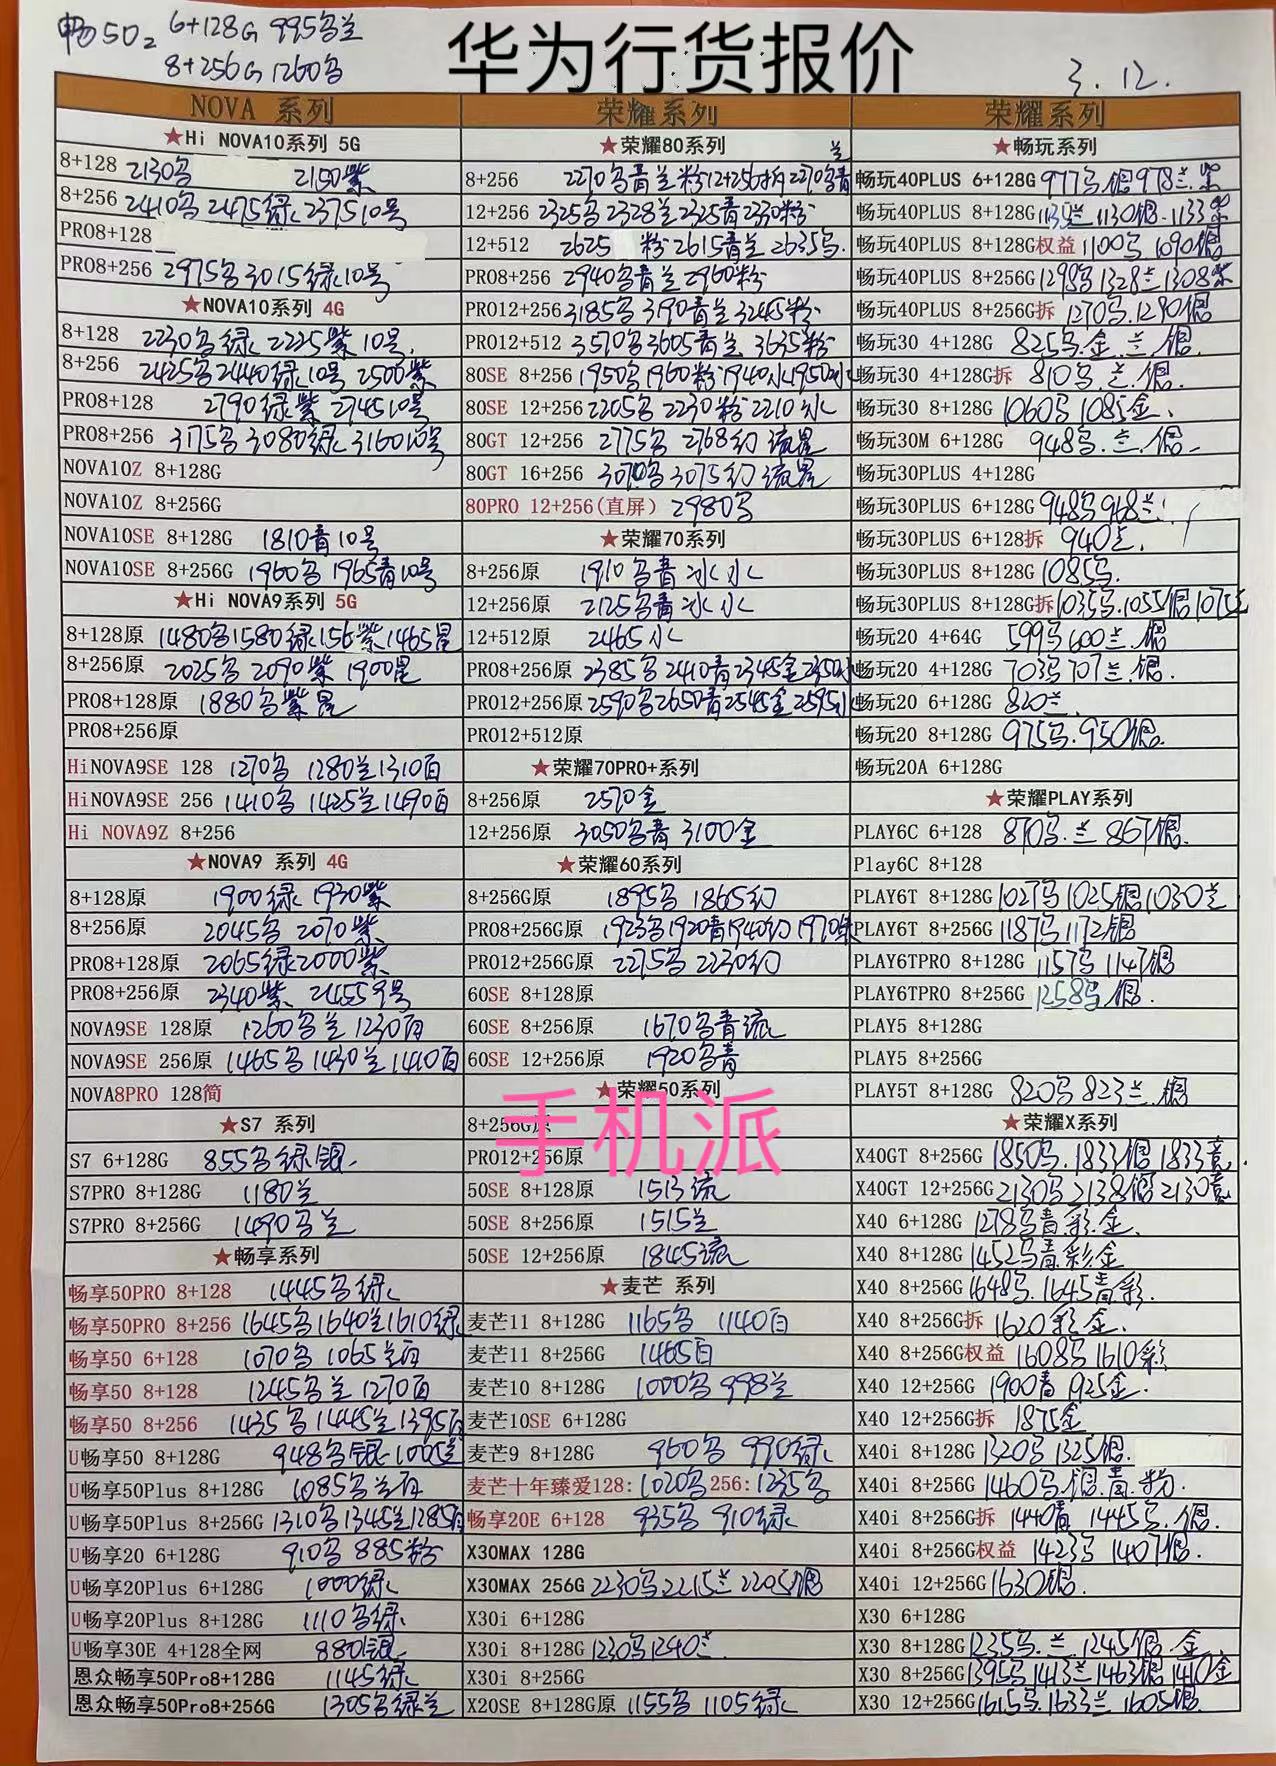 畅50z 6+128G 995乌兰
8+256G 1260乌
华为行货报价
3.12.
NOVA 系列
★Hi NOVA10系列 5G
8+128 2130乌 2150紫
8+256 2410乌 2475绿 2375 10号
PRO8+128
PRO8+256 2975乌 3015绿 10号
★NOVA10系列 4G
8+128 2230乌绿 2225紫 10号
8+256 2425乌 2440绿 10号 2500紫
PRO8+128 2790绿紫 2745 10号
PRO8+256 3175乌 3080绿 3160 10号
NOVA10Z 8+128G
NOVA10Z 8+256G
NOVA10SE 8+128G 1810青 10号
NOVA10SE 8+256G 1960乌 1965青 10号
★Hi NOVA9系列 5G
8+128原 1480乌 1580绿 156 紫 1465星
8+256原 2025乌 2090紫 1900星
PRO8+128原 1880乌紫星
PRO8+256原
HiNOVA9SE 128 1270乌 1280兰 1310白
HiNOVA9SE 256 1410乌 1425兰 1490白
Hi NOVA9Z 8+256
★NOVA9 系列 4G
8+128原 1900绿 1930紫
8+256原 2045乌 2070紫
PRO8+128原 2065绿 2000紫
PRO8+256原 2340紫 2455 9号
NOVA9SE 128原 1260乌兰 1230白
NOVA9SE 256原 1465乌 1430兰 1410白
NOVA8PRO 128简
★S7 系列
S7 6+128G 855乌绿银
S7PRO 8+128G 1180兰
S7PRO 8+256G 1490乌兰
★畅享系列
畅享50PRO 8+128 1445乌绿
畅享50PRO 8+256 1645乌 1640兰 1610绿
畅享50 6+128 1070乌 1065兰白
畅享50 8+128 1245乌兰 1270白
畅享50 8+256 1435乌 1445兰 1395白
U畅享50 8+128G 948乌银 1005兰
U畅享50Plus 8+128G 1085乌兰白
U畅享50Plus 8+256G 1310乌 1345兰 1285白
U畅享20 6+128G 910乌 885粉
U畅享20Plus 6+128G 1000绿
U畅享20Plus 8+128G 1110乌绿
U畅享30E 4+128全网 880银
恩众畅享50Pro8+128G 1145绿
恩众畅享50Pro8+256G 1305乌绿兰
荣耀系列
★荣耀80系列 兰
8+256 2270乌青兰粉 12+256拆 2270乌青
12+256 2325乌 2328兰 2325青 2330粉
12+512 2625 粉 2615青兰 2635乌
PRO8+256 2940乌青兰 2960粉
PRO12+256 3185乌 3190青兰 3245粉
PRO12+512 3570乌 3605青兰 3635粉
80SE 8+256 1950乌 1960粉 1940水 1950冰
80SE 12+256 2205乌 2230粉 2210冰
80GT 12+256 2775乌 2768幻 流星
80GT 16+256 3070乌 3075幻 流星
80PRO 12+256(直屏) 2980乌
★荣耀70系列
8+256原 1910乌青冰水
12+256原 2125乌青冰水
12+512原 2465水
PRO8+256原 2385乌 2410青 2345金 2350冰
PRO12+256原 2590乌 2650青 2545金 2595冰
PRO12+512原
★荣耀70PRO+系列
8+256原 2570金
12+256原 3050乌青 3100金
★荣耀60系列
8+256G原 1895乌 1865幻
PRO8+256G原 1923乌 1920青 1940幻 1970朱
PRO12+256G原 2275乌 2230幻
60SE 8+128原
60SE 8+256原 1670乌青流
60SE 12+256原 1920乌青
★荣耀50系列
8+256G原
PRO12+256原
50SE 8+128原 1513流
50SE 8+256原 1515兰
50SE 12+256原 1845流
★麦芒 系列
麦芒11 8+128G 1165乌 1140白
麦芒11 8+256G 1465白
麦芒10 8+128G 1000乌 998兰
麦芒10SE 6+128G
麦芒9 8+128G 960乌 990绿
麦芒十年臻爱128: 1020乌 256: 1235乌
畅享20E 6+128 935乌 910绿
X30MAX 128G
X30MAX 256G 2230乌 2215兰 2205银
X30i 6+128G
X30i 8+128G 1230乌 1240兰
X30i 8+256G
X20SE 8+128G原 1155乌 1105绿
荣耀系列
★畅玩系列
畅玩40PLUS 6+128G 977乌.银 978兰.紫
畅玩40PLUS 8+128G 1135兰 1130银.1133紫
畅玩40PLUS 8+128G权益 1100乌 1090银
畅玩40PLUS 8+256G 1298乌 1328兰 1308紫
畅玩40PLUS 8+256G拆 1270乌.1280银
畅玩30 4+128G 825乌.金.兰.银
畅玩30 4+128G拆 810乌.兰.银.
畅玩30 8+128G 1060乌 1085金.
畅玩30M 6+128G 948乌.兰.银
畅玩30PLUS 4+128G
畅玩30PLUS 6+128G 948乌 968兰.
畅玩30PLUS 6+128拆 940兰.
畅玩30PLUS 8+128G 1085乌.
畅玩30PLUS 8+128G拆 1035乌.1055银 1075兰
畅玩20 4+64G 599乌 600兰.银
畅玩20 4+128G 703乌 707兰.银.
畅玩20 6+128G 820兰.
畅玩20 8+128G 975乌.950银.
畅玩20A 6+128G
★荣耀PLAY系列
PLAY6C 6+128 870乌.兰 867银.
Play6C 8+128
PLAY6T 8+128G 1027乌 1025银 1030兰
PLAY6T 8+256G 1187乌 1172银
PLAY6TPRO 8+128G 1157乌 1147银
PLAY6TPRO 8+256G 1258乌.银.
PLAY5 8+128G
PLAY5 8+256G
PLAY5T 8+128G 820乌 823兰.银
★荣耀X系列
X40GT 8+256G 1850乌.1833银 1833竞.
X40GT 12+256G 2130乌 2138银 2130竞
X40 6+128G 1278乌青.彩.金.
X40 8+128G 1452乌青.彩金
X40 8+256G 1648乌.1645青彩.
X40 8+256G拆 1620彩金.
X40 8+256G权益 1608乌 1610彩
X40 12+256G 1900青 1925金.
X40 12+256G拆 1875金
X40i 8+128G 1320乌 1325银.
X40i 8+256G 1460乌.银.青.粉.
X40i 8+256G拆 1440青 1445乌.银.
X40i 8+256G权益 1423乌 1407银.
X40i 12+256G 1630银.
X30 6+128G
X30 8+128G 1235乌.兰.1245银.金
X30 8+256G 1395乌 1413兰 1463银 1410金
X30 12+256G 1615乌.1633兰 1605银.
手机派